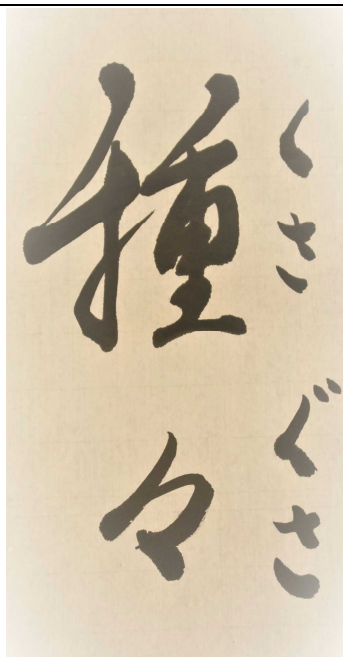 種々
くさぐさ